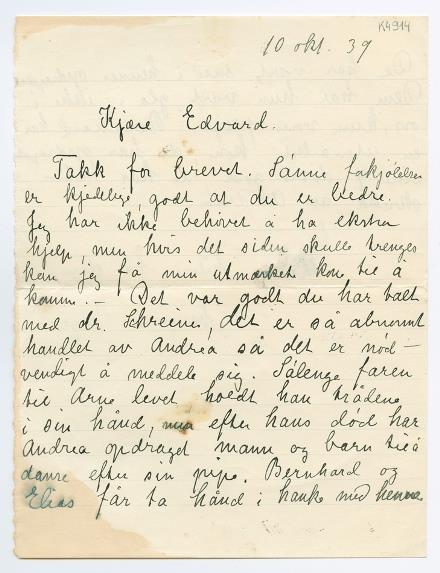 K4914
10 okt. 39
Kjære Edvard.
Takk for brevet. Sånne forkjølelser
er kjedelige, godt at du er bedre.
Jeg har ikke behøvet å ha ekstra
hjelp, men hvis det siden skulle trenges
kan jeg få min utmærket kone til å
komme. – Det var godt du har talt
med dr. Schreiner, det er så abnormt
handlet av Andrea så det er nød-
vendigt å meddele sig. Sålenge faren
til Arne levet holdt han trådene
i sin hånd, men efter hans død har
Andrea opdraget mann og barn til å
danse efter sin pipe. Bernhard og
Elias får ta hånd i hanke med henne